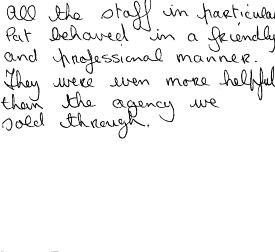 All the staff in particular
Pat behaved in a friendly
and professional manner.
They were even more helpful
than the agency we
sold through.